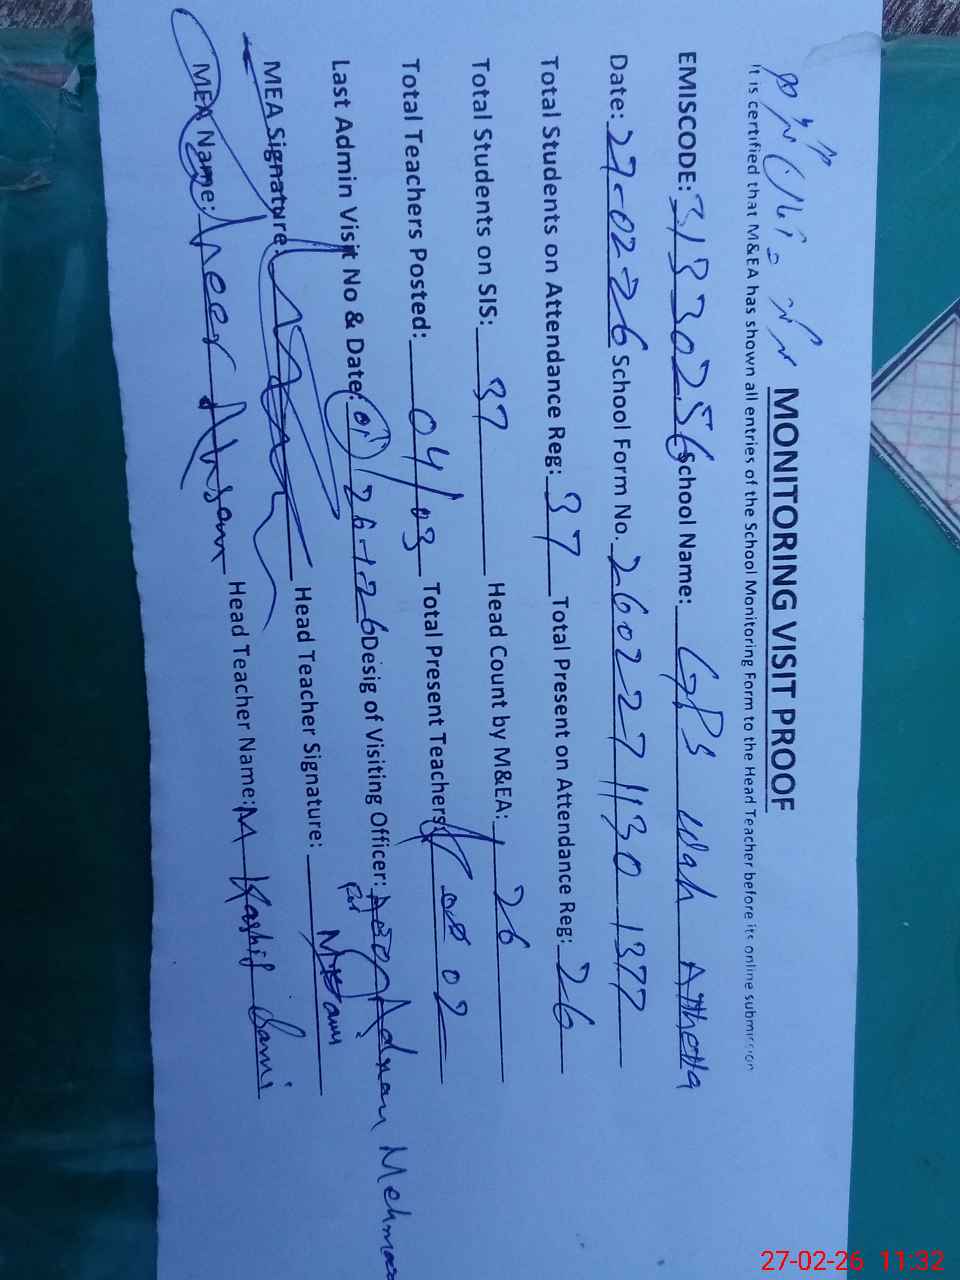 MONITORING VISIT PROOF
It is certified that M&EA has shown all entries of the School Monitoring Form to the Head Teacher before its online submission
EMISCODE: 31330256 School Name: GPS Wah Atthella
Date: 27-02-26 School Form No. 260227 1130 1377
Total Students on Attendance Reg: 37 Total Present on Attendance Reg: 26
Total Students on SIS: 37 Head Count by M&EA: 26
Total Teachers Posted: 04/03 Total Present Teachers: 02
Last Admin Visit No & Date: 01/26-1-26 Desig of Visiting Officer: Adnan Mehmood
MEA Signature: Head Teacher Signature:
MEA Name: Ahsan Head Teacher Name: M Kashif Sami
27-02-26 11:32